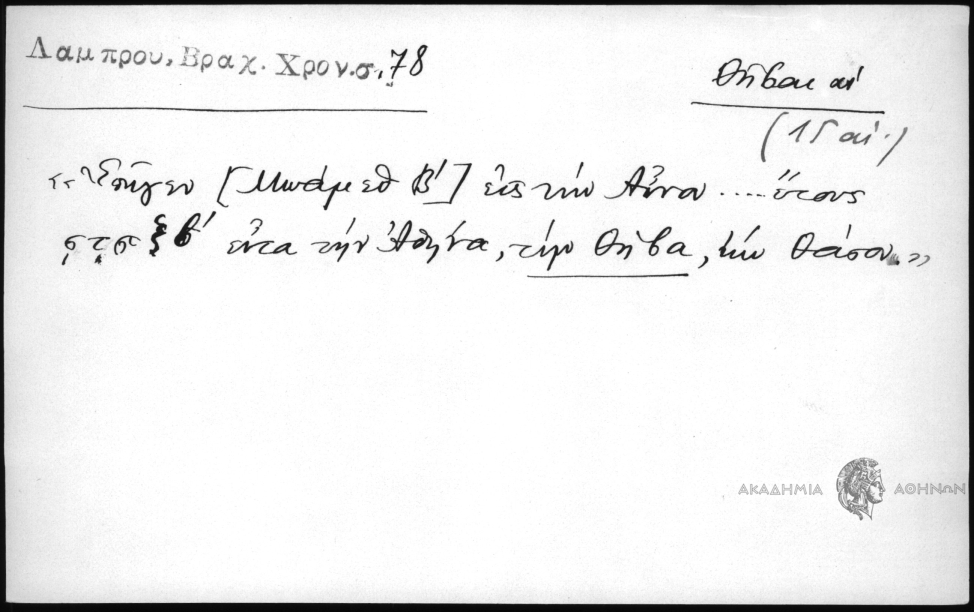 Λαμπρου, Βραχ. Χρον. σ. 78
Θῆβαι αἱ
(15 αἰ.)
«Ἐπῆγεν [Μωάμεθ Β'] εἰς τὴν Αἶνο .... ἔτους
ϛϡξβ' εἶτα τὴν Ἀθήνα, τὴν Θήβα, τὴν Θάσον.»
ΑΚΑΔΗΜΙΑ ΑΘΗΝΩΝ